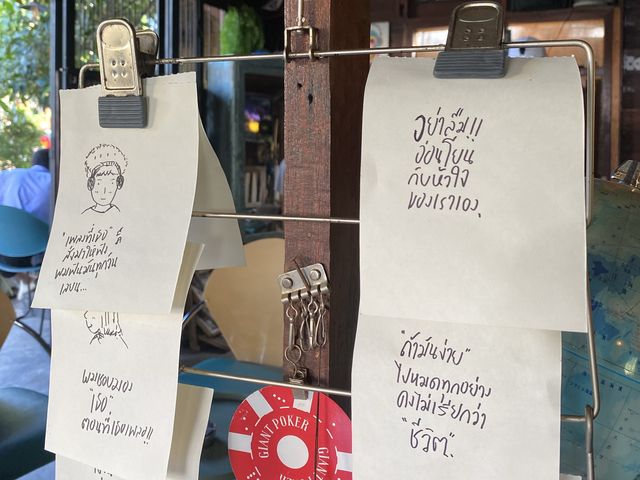 "เพลงที่เธอ" ก็
ส่งมาให้ฟัง
ผมฟังมันทุกวัน
เลยน...
ผมชอบมอง
"เธอ"
ตอนที่เธอเพลง!!
อย่าลืม!!
อ่อนโยน
กับหัวใจ
ของเราเอง
"ถ้ามันง่าย"
ไปหมดทุกอย่าง
คงไม่เรียกว่า
"ชีวิต"
GIANT POKER
GIANT